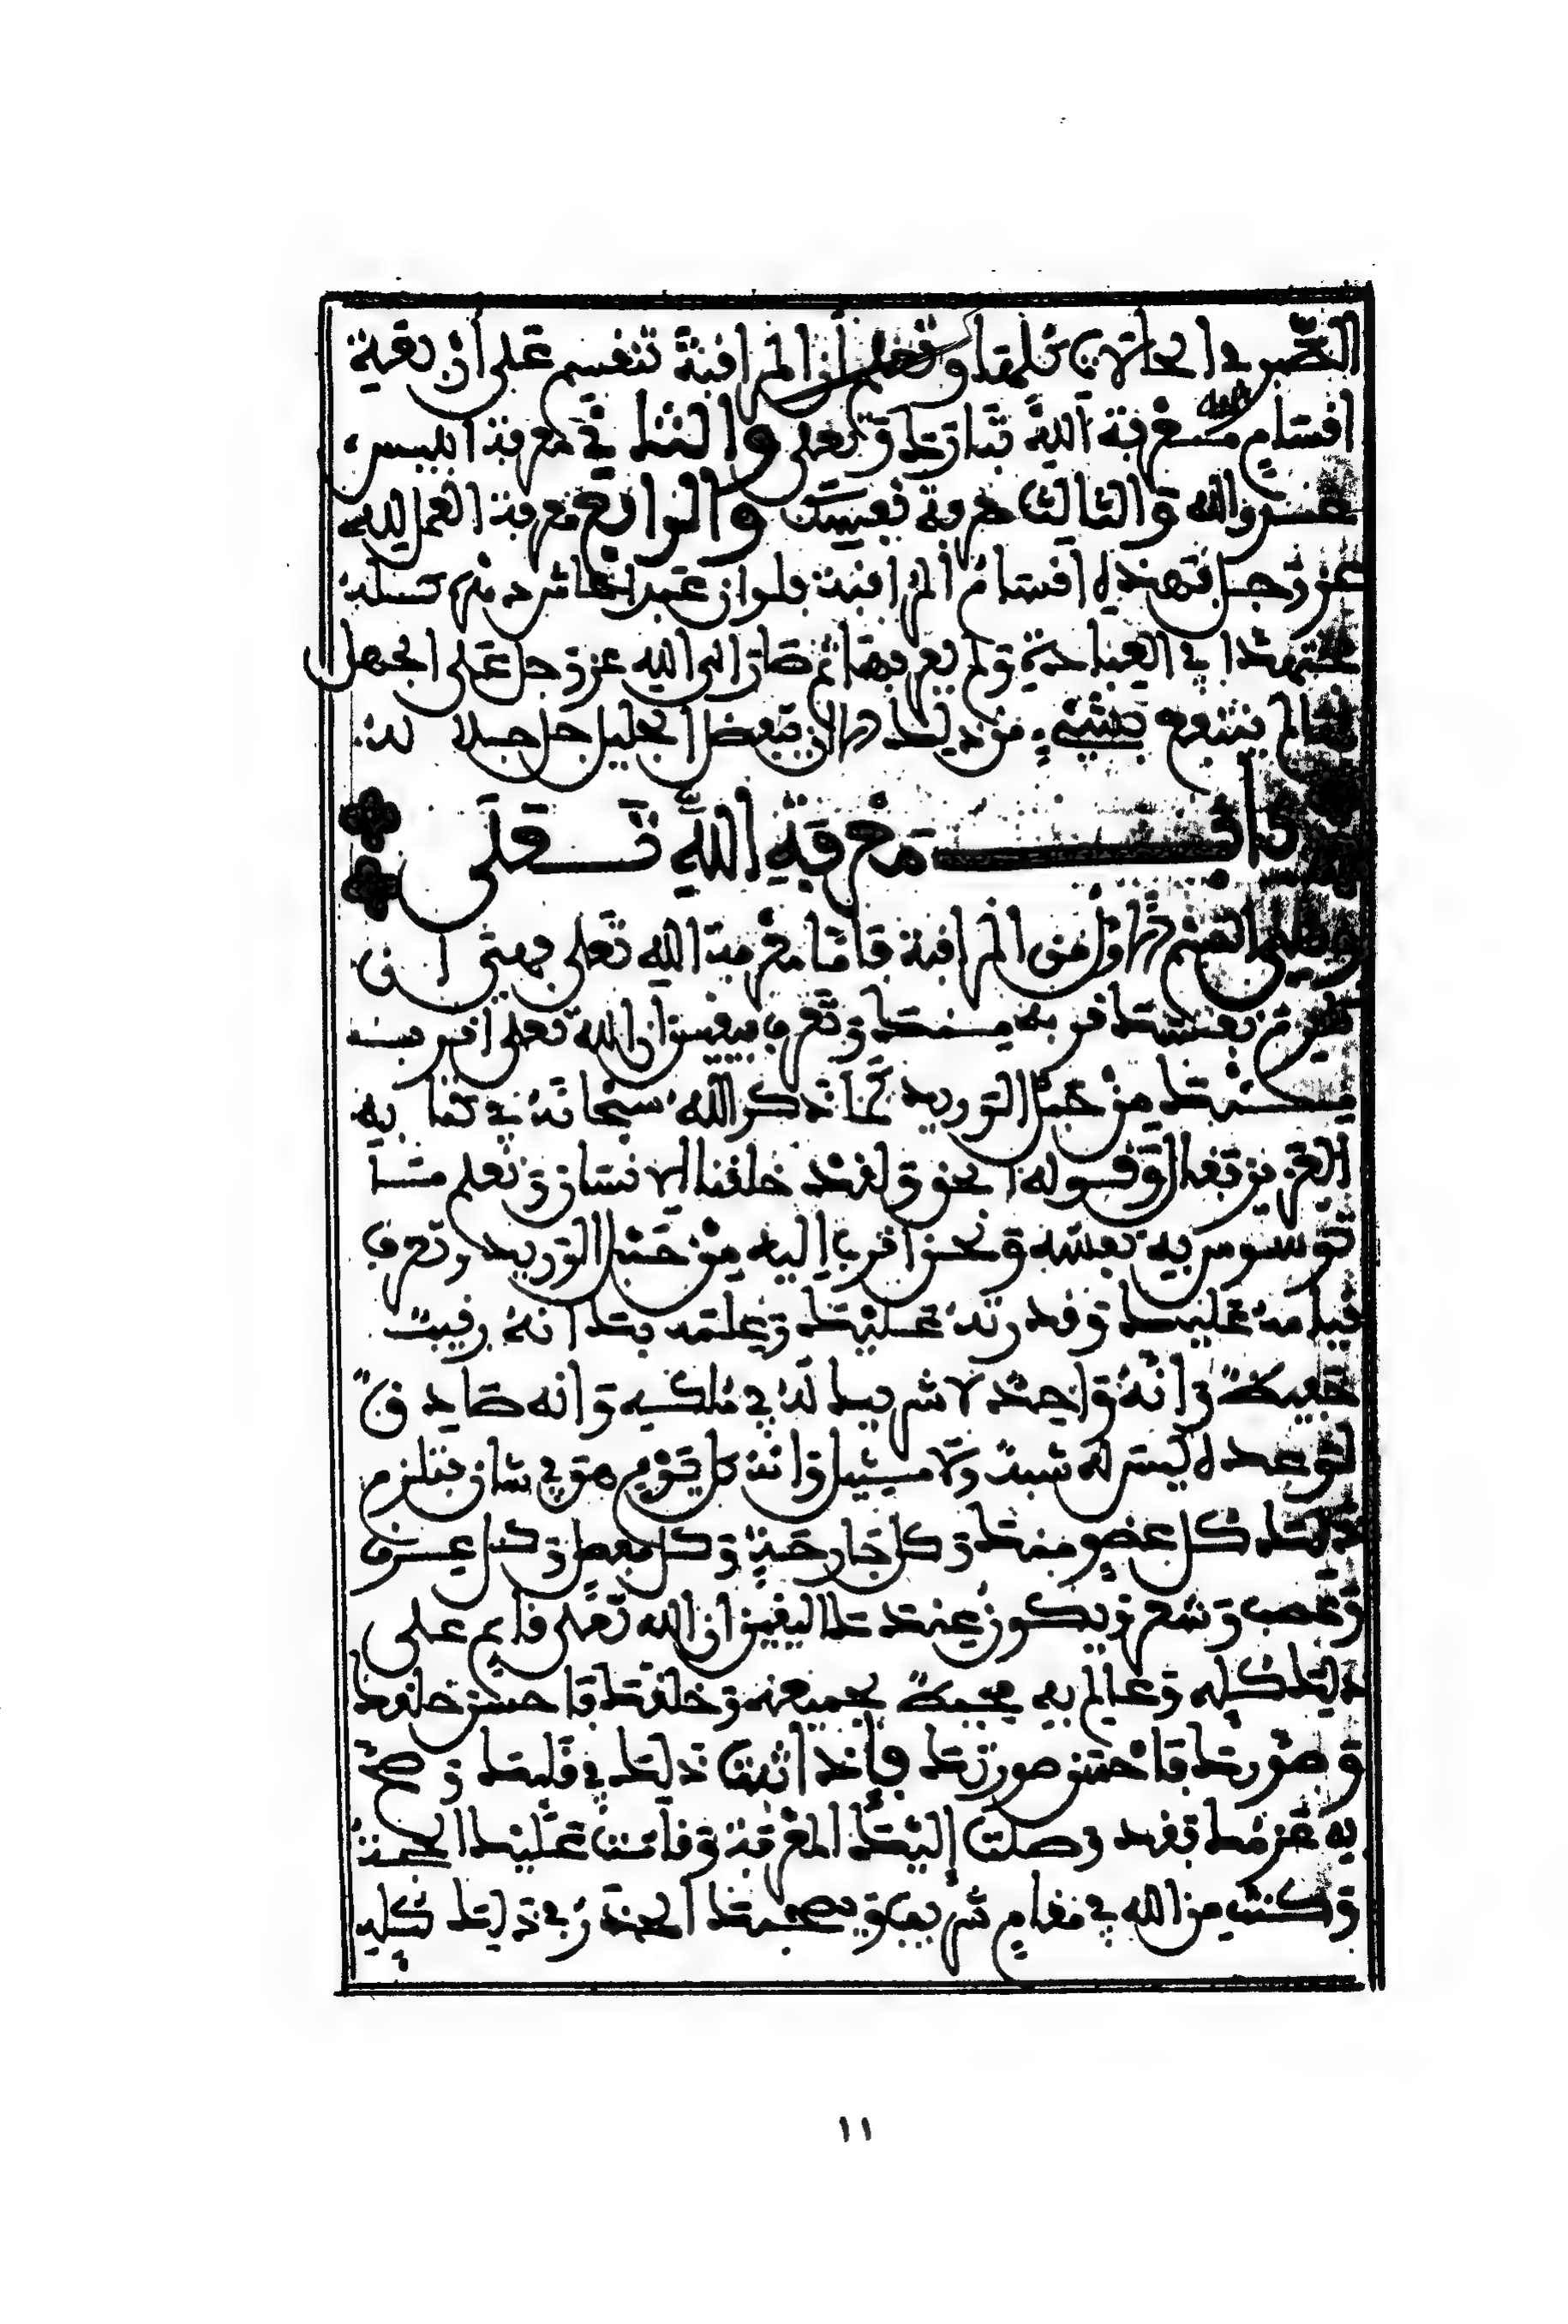 الصبر في الحالات كلها وتعلم أن المراقبة تنقسم على أربعة
أقسام معرفة الله تبارك وتعلى والثاني معرفة ابليس
عدو الله والثالث معرفة نفسك والرابع معرفة العمل لله
عز وجل فهذه أقسام المراقبة فلو أن عبدا عاش دهره كله
مجتهدا في العبادة ولم يعرفها ثم صار إلى الله عز وجل على الجهل
لم ينتفع بشيء من ذلك إلا أن يتفضل الجليل جل جلا له
باب معرفة الله تعلى
وهي القسم الأول من المراقبة فأما معرفة الله تعلى فهي أن
تلزم نفسك قربه منك وتعرف بيقين أن الله تعلى أقرب
إليك من حبل الوريد كما ذكر الله سبحانه في كتابه
العزيز فقال وقوله الحق ولقد خلقنا الانسان ونعلم ما
توسوس به نفسه ونحن أقرب إليه من حبل الوريد وتعرف
قيامه عليك وقدرته عليك وعلمه بك أنه رقيب
حفيظ وأنه واحد لا شريك له في ملكه وأنه صادق
لوعده ليس له شبه ولا مثيل وأنه كل يوم هو في شأن فتلزم
ذلك كل عضو منك وكل جارحة وكل مفصل وكل عرق
وعصب وشعر ويكون عندك اليقين ان الله تعلى قايم على
ذلك كله وعالم به محيط بجميعه وخلقك فأحسن خلقك
وصورك فأحسن صورتك فإذا اثبت ذلك في قلبك وصح
به عزمك فقد وصلت إليك المعرفة وقامت عليك الحجة
وكنت من الله في مقام شريف ويصحبك الحذر في ذلك كله
١١